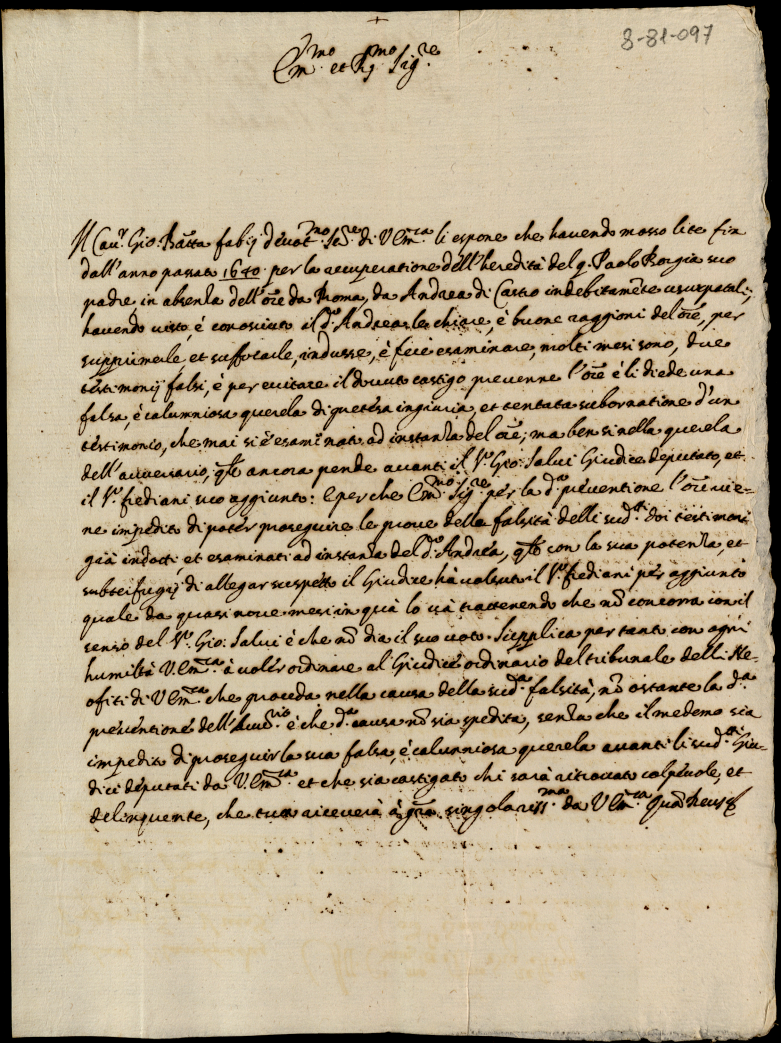 8-81-097
Em.mo et R.mo Sig.re
Il Cav.r Gio: Batta fabij devot.mo Se.re di V Em.za li espone che havendo mosso lite fin
dall'anno passato 1640 per la recuperatione dell'heredità del q. Paolo Borgia suo
padre, in absenza dell'Ore da Roma, da Andrea di Castro indebitamte usurpatali;
havendo visto, è conosciuto il d.o Andrea le chiare, è buone raggioni del Ore, per
supprimerle et suffocarle, indusse, è fece esaminare, molti mesi sono, due
testimonij falsi, è per evitare il dovuto castigo prevenne l'Ore è li diede una
falsa, è calumniosa querela di pretesa ingiuria, et tentata subornatione d'un
testimonio, che mai si è esaminato ad instanza del Ore; ma ben si nella querela
dell'avversario, qle ancora pende avanti il S.r Gio: Salvi Giudice deputato, et
il S.r fiediani suo aggiunto: E perche Em.mo Sig.re per la d.a preventione l'Ore vie=
ne impedito di poter proseguire le prove della falsità delli sud.ti doi testimoni
già indotti et esaminati ad instanza del d.o Andrea, qle con la sua potenza, et
subterfugij di allegar suspetto il Giudice hà voluto il S.r fiediani per aggiunto
quale da quasi nove mesi in quà lo và trattenendo che nõ concorra con il
senso del S.r Gio: Salvi è che nõ dia il suo voto. Supplica per tanto con ogni
humiltà V. Em.za à voler ordinare al Giudice ordinario del tribunale delli Ne=
ofiti di V Em.za che proceda nella causa della sud.a falsità, nõ ostante la d.a
preventione dell'Avv.rio è che d.a causa nõ sia spedita, senza che il medemo sia
impedito di proseguir la sua falsa, è calumniosa querela avanti li sud.ti Giu=
dici deputati da V. Em.za et che sia castigato chi sarà ritrovato colpevole, et
delinquente, che tutto riceverà à gra singolariss.ma da V Em.za Quã Deus